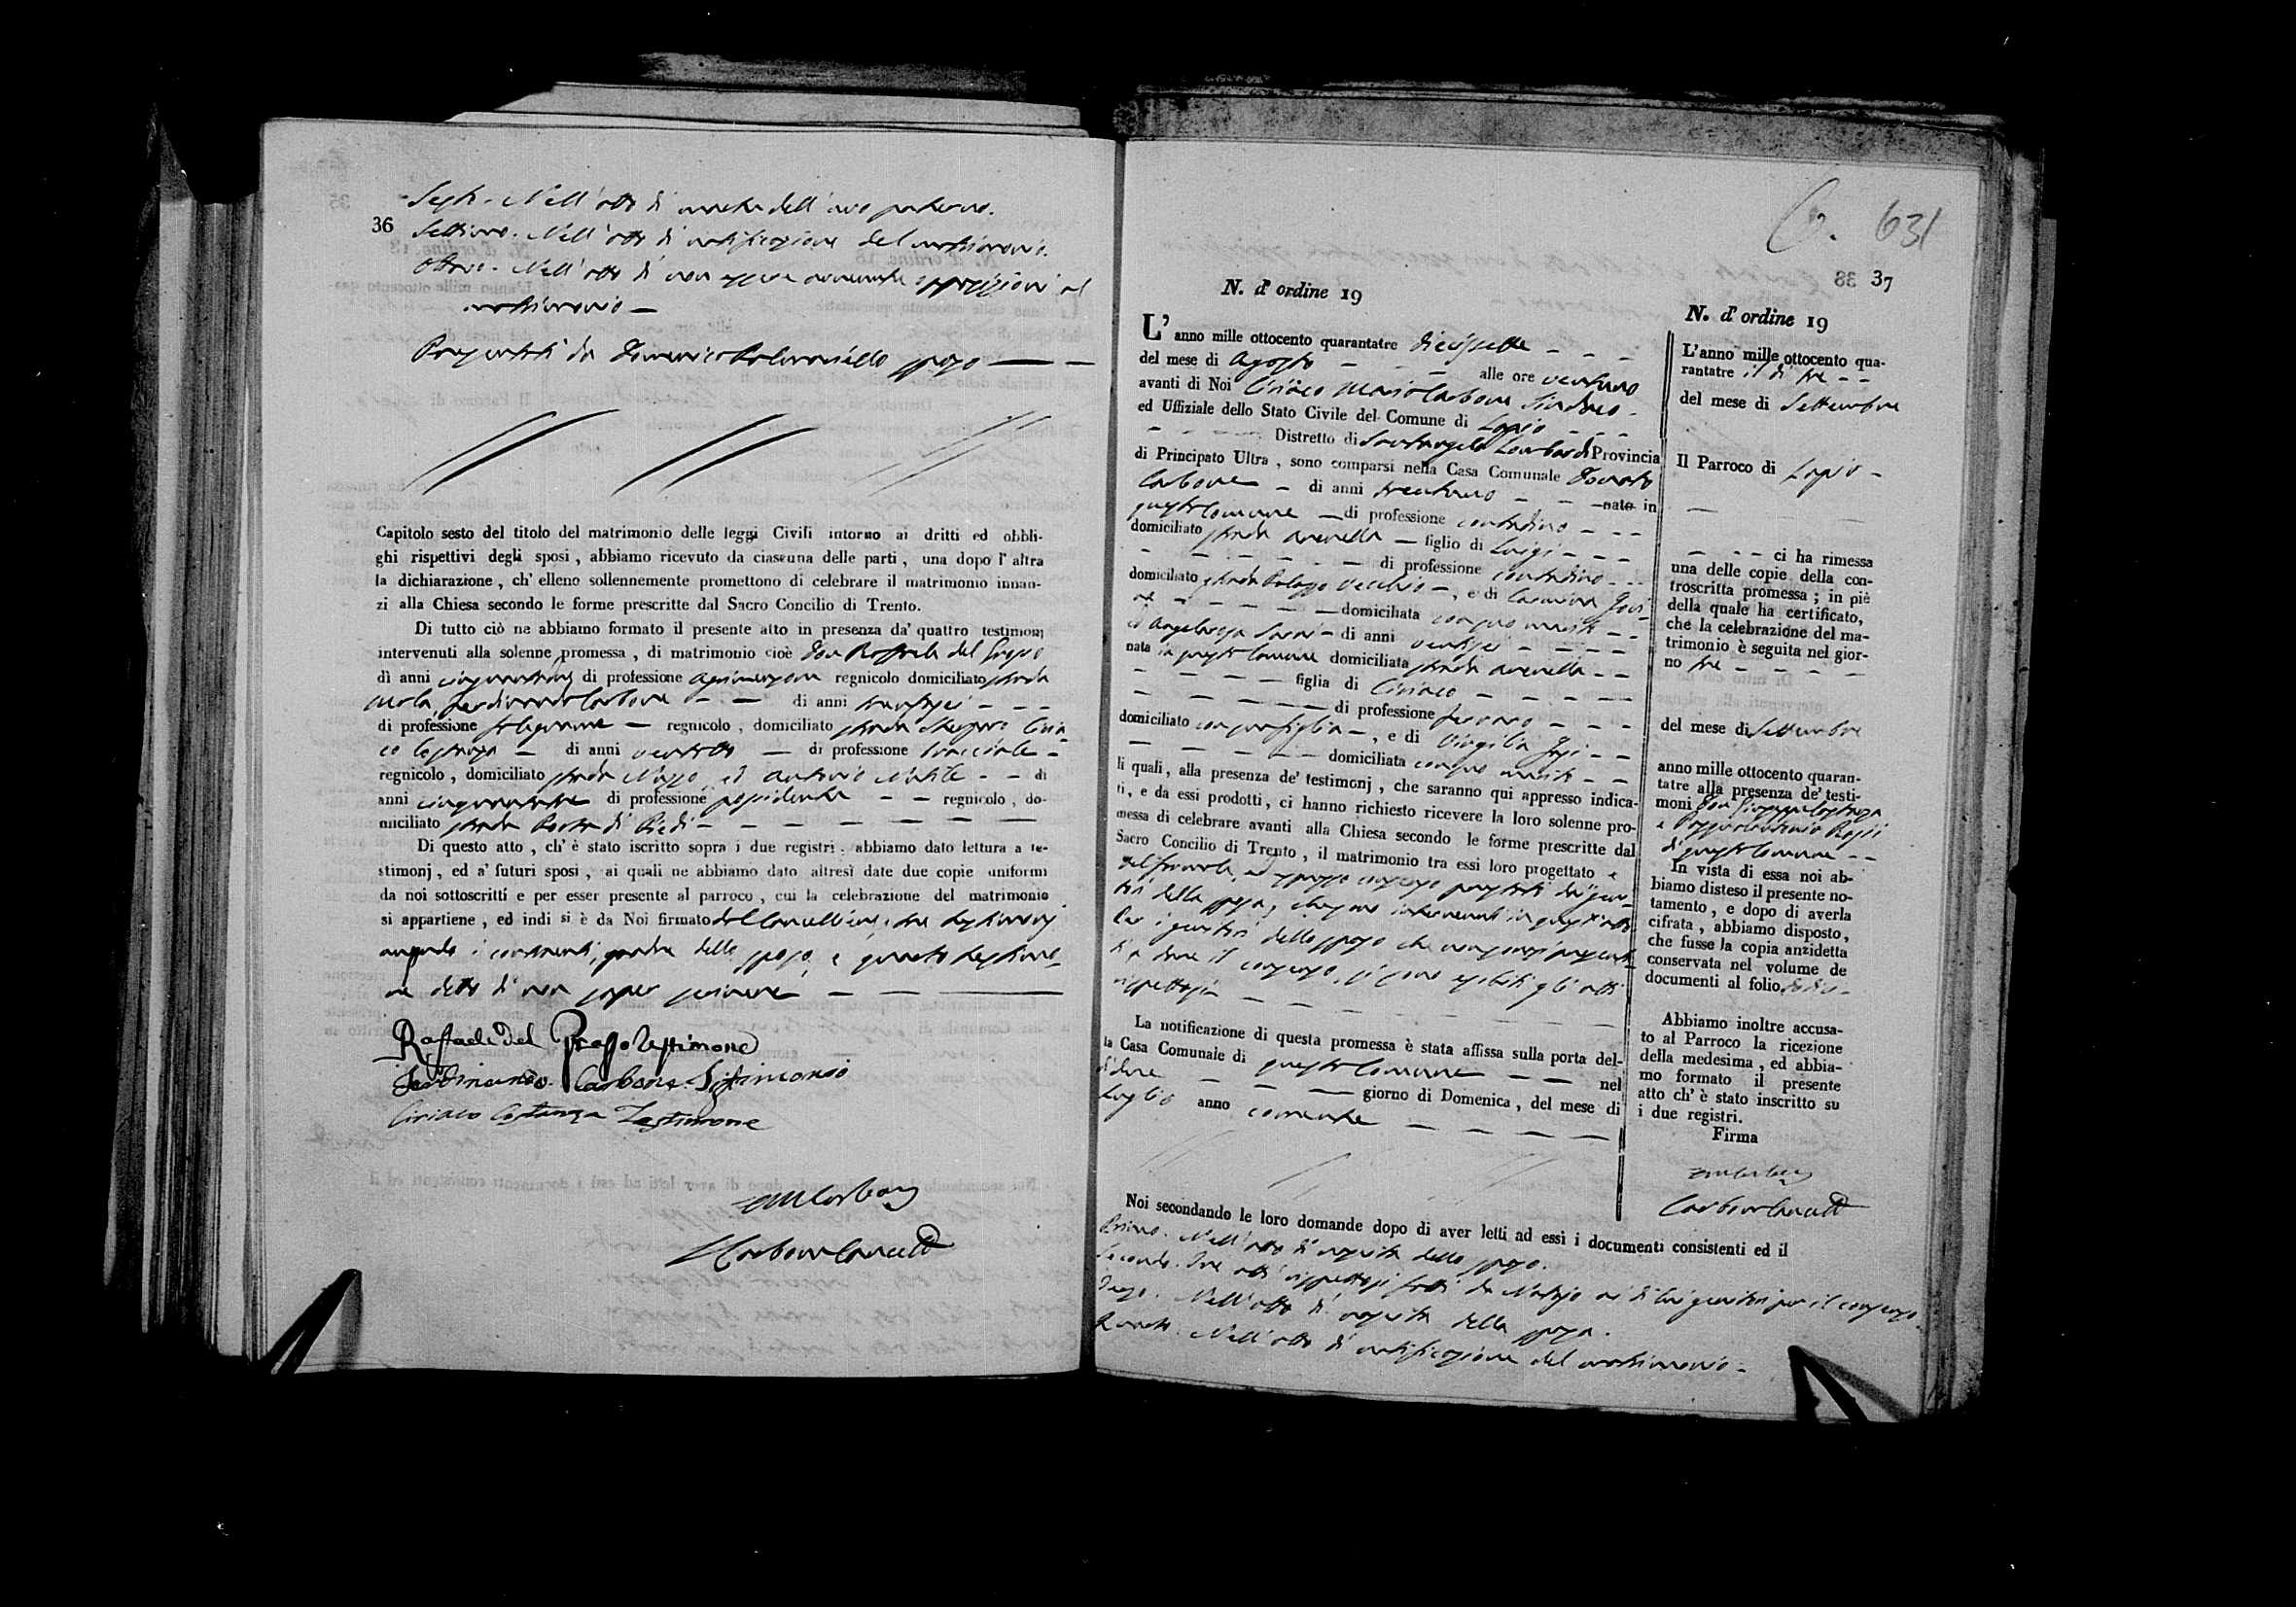 36
Sesto. Nell'atto di morte dell'avo paterno.
Settimo. Nell'atto di notificazione del matrimonio.
Ottavo. Nell'atto di non essere avvenute opposizioni al
matrimonio —
Presentati da Domenico sposo — —
Capitolo sesto del titolo del matrimonio delle leggi Civili intorno ai dritti ed obbli-
ghi rispettivi degli sposi, abbiamo ricevuto da ciascuna delle parti, una dopo l'altra
la dichiarazione, ch'elleno sollennemente promettono di celebrare il matrimonio innan-
zi alla Chiesa secondo le forme prescritte dal Sacro Concilio di Trento.
Di tutto ciò ne abbiamo formato il presente atto in presenza da' quattro testimonj
intervenuti alla solenne promessa, di matrimonio cioè Don Raffaele del Grosso
di anni di professione agrimensore regnicolo domiciliato strada
Ferdinando Carbone — — di anni trentasei — — —
di professione falegname — regnicolo, domiciliato strada Ciria-
co Costanza — di anni ventotto — di professione bracciale —
regnicolo, domiciliato strada ed Antonio — — di
anni di professione possidente — — regnicolo, do-
miciliato strada Porta di Piedi — — — — — —
Di questo atto, ch'è stato iscritto sopra i due registri. abbiamo dato lettura a te-
stimonj, ed a' futuri sposi, ai quali ne abbiamo dato altresì date due copie uniformi
da noi sottoscritti e per esser presente al parroco, cui la celebrazione del matrimonio
si appartiene, ed indi si è da Noi firmato dal Cancelliere, e tre testimonj
avendo i contraenti, padre dello sposo, e quarto testimo-
ne detto di non saper scrivere — — —
Raffaele del Grosso Testimone
Ferdinando Carbone Testimonio
Ciriaco Costanza Testimone
Carbone Cancell
631
38 37
N. d'ordine 19
L'anno mille ottocento quarantatre diecissette — — —
del mese di Agosto — — — alle ore ventuno
avanti di Noi Ciriaco Maria Carbone Sindaco —
ed Uffiziale dello Stato Civile del Comune di Lapio — — —
— — — — Distretto di Santangelo Lombardi Provincia
di Principato Ultra, sono comparsi nella Casa Comunale Donato
Carbone — di anni trentuno — — nato in
questo Comune — di professione contadino — — —
domiciliato strada Arenella — figlio di Luigi — — —
— — — — — di professione contadino — —
domiciliato strada Palazzo Vecchio —, e di Carmina
— — — — — domiciliata con suo marito — —
ed Angelarosa — di anni ventisei — — — —
nata in questo Comune domiciliata strada Arenella — —
— — — — figlia di Ciriaco — — — — —
— — — — di professione ferraro — — —
domiciliato con sua figlia —, e di Virgilia — —
— — — — — domiciliata con suo marito — —
li quali, alla presenza de' testimonj, che saranno qui appresso indica-
ti, e da essi prodotti, ci hanno richiesto ricevere la loro solenne pro-
messa di celebrare avanti alla Chiesa secondo le forme prescritte dal
Sacro Concilio di Trento, il matrimonio tra essi loro progettato e
del formale, ed espresso consenso prestato da' geni-
tori della sposa, che sono intervenuti in quest'atto
Per i genitori dello sposo che non sonosi presenta-
ti a dare il consenso, si sono esibiti gli atti
rispettosi — — — — — — —
La notificazione di questa promessa è stata affissa sulla porta del-
la Casa Comunale di questo Comune — — nel
sedere — — — giorno di Domenica, del mese di
Luglio anno corrente — — — — —
Noi secondando le loro domande dopo di aver letti ad essi i documenti consistenti ed il
Primo. Nell'atto di nascita dello sposo.
Secondo. Tre atti rispettosi fatti da Notajo ai di lui genitori per il consenso.
Terzo. Nell'atto di nascita della sposa.
Quarto. Nell'atto di notificazione del matrimonio —
N. d'ordine 19
L'anno mille ottocento qua-
rantatre il di tre — —
del mese di Settembre
Il Parroco di Lapio —
— — — ci ha rimessa
una delle copie della con-
troscritta promessa; in piè
della quale ha certificato,
che la celebrazione del ma-
trimonio è seguita nel gior-
no tre — — — —
del mese di Settembre
anno mille ottocento quaran-
tatre alla presenza de' testi-
moni Don Giuseppe Costanza
e
di questo Comune — —
In vista di essa noi ab-
biamo disteso il presente no-
tamento, e dopo di averla
cifrata, abbiamo disposto,
che fusse la copia anzidetta
conservata nel volume de
documenti al folio
Abbiamo inoltre accusa-
to al Parroco la ricezione
della medesima, ed abbia-
mo formato il presente
atto ch'è stato inscritto su
i due registri.
Firma
Carbone Cancell